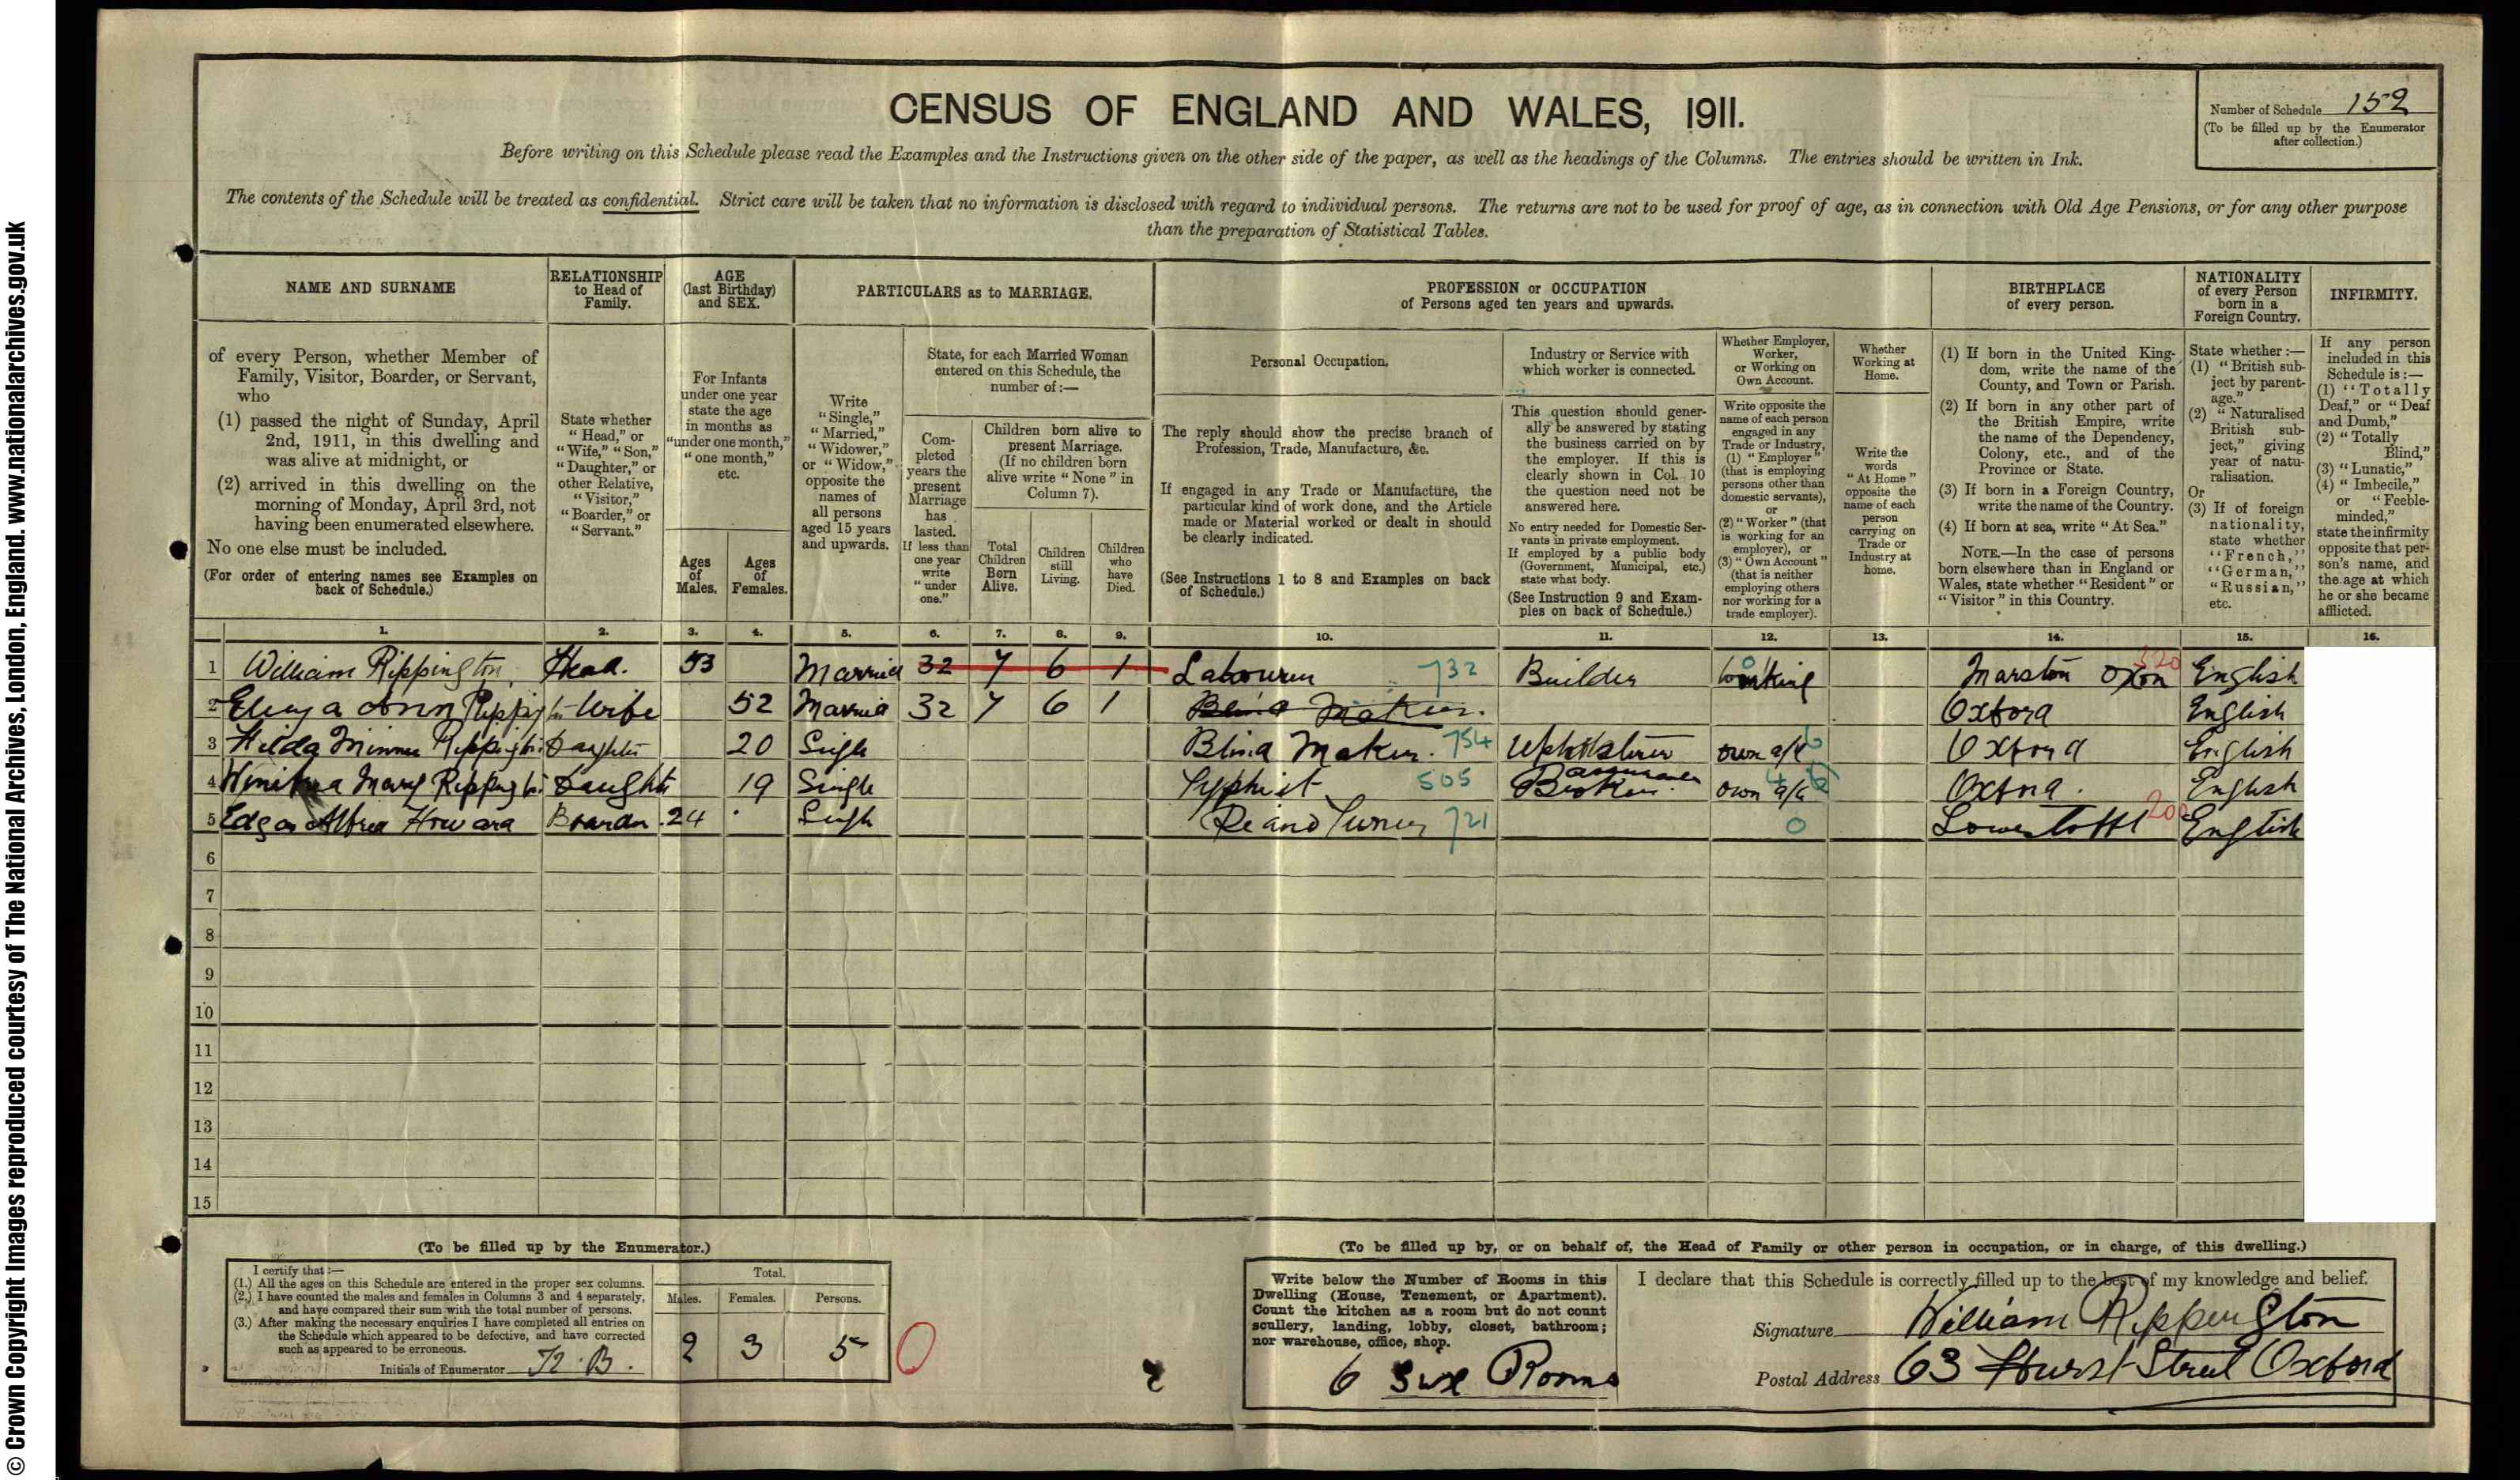 © Crown Copyright Images reproduced courtesy of The National Archives, London, England. www.nationalarchives.gov.uk
CENSUS OF ENGLAND AND WALES, 1911.
Number of Schedule 152
(To be filled up by the Enumerator
after collection.)
Before writing on this Schedule please read the Examples and the Instructions given on the other side of the paper, as well as the headings of the Columns. The entries should be written in Ink.
The contents of the Schedule will be treated as confidential. Strict care will be taken that no information is disclosed with regard to individual persons. The returns are not to be used for proof of age, as in connection with Old Age Pensions, or for any other purpose
than the preparation of Statistical Tables.
NAME AND SURNAME
of every Person, whether Member of
Family, Visitor, Boarder, or Servant,
who
(1) passed the night of Sunday, April
2nd, 1911, in this dwelling and
was alive at midnight, or
(2) arrived in this dwelling on the
morning of Monday, April 3rd, not
having been enumerated elsewhere.
No one else must be included.
(For order of entering names see Examples on
back of Schedule.)
RELATIONSHIP
to Head of
Family.
State whether
"Head," or
"Wife," "Son,"
"Daughter," or
other Relative,
"Visitor,"
"Boarder," or
"Servant."
AGE
(last Birthday)
and SEX.
For Infants
under one year
state the age
in months as
"under one month,"
"one month,"
etc.
Ages
of
Males.
Ages
of
Females.
PARTICULARS as to MARRIAGE.
Write
"Single,"
"Married,"
"Widower,"
or "Widow,"
opposite the
names of
all persons
aged 15 years
and upwards.
State, for each Married Woman
entered on this Schedule, the
number of:—
Com-
pleted
years the
present
Marriage
has
lasted.
If less than
one year
write
"under
one."
Children born alive to
present Marriage.
(If no children born
alive write "None" in
Column 7).
Total
Children
Born
Alive.
Children
still
Living.
Children
who
have
Died.
PROFESSION or OCCUPATION
of Persons aged ten years and upwards.
Personal Occupation.
The reply should show the precise branch of
Profession, Trade, Manufacture, &c.
If engaged in any Trade or Manufacture, the
particular kind of work done, and the Article
made or Material worked or dealt in should
be clearly indicated.
(See Instructions 1 to 8 and Examples on back
of Schedule.)
Industry or Service with
which worker is connected.
This question should gener-
ally be answered by stating
the business carried on by
the employer. If this is
clearly shown in Col. 10
the question need not be
answered here.
No entry needed for Domestic Ser-
vants in private employment.
If employed by a public body
(Government, Municipal, etc.)
state what body.
(See Instruction 9 and Exam-
ples on back of Schedule.)
Whether Employer,
Worker,
or Working on
Own Account.
Write opposite the
name of each person
engaged in any
Trade or Industry,
(1) "Employer"
(that is employing
persons other than
domestic servants),
or
(2) "Worker" (that
is working for an
employer), or
(3) "Own Account"
(that is neither
employing others
nor working for a
trade employer).
Whether
Working at
Home.
Write the
words
"At Home"
opposite the
name of each
person
carrying on
Trade or
Industry at
home.
BIRTHPLACE
of every person.
(1) If born in the United King-
dom, write the name of the
County, and Town or Parish.
(2) If born in any other part of
the British Empire, write
the name of the Dependency,
Colony, etc., and of the
Province or State.
(3) If born in a Foreign Country,
write the name of the Country.
(4) If born at sea, write "At Sea."
NOTE.—In the case of persons
born elsewhere than in England or
Wales, state whether "Resident" or
"Visitor" in this Country.
NATIONALITY
of every Person
born in a
Foreign Country.
State whether:—
(1) "British sub-
ject by parent-
age."
(2) "Naturalised
British sub-
ject," giving
year of natu-
ralisation.
Or
(3) If of foreign
nationality,
state whether
"French,"
"German,"
"Russian,"
etc.
INFIRMITY.
If any person
included in this
Schedule is:—
(1) "Totally
Deaf," or "Deaf
and Dumb,"
(2) "Totally
Blind,"
(3) "Lunatic,"
(4) "Imbecile,"
or "Feeble-
minded,"
state the infirmity
opposite that per-
son's name, and
the age at which
he or she became
afflicted.
1. 2. 3. 4. 5. 6. 7. 8. 9. 10. 11. 12. 13. 14. 15. 16.
1 William Rippington, Head. 53 Married 32 7 6 1 Labourer 732 Builder Working 0 Marston Oxon 320 English
2 Eliza Ann Rippington Wife 52 Married 32 7 6 1 Blind Maker. Oxford English
3 Hilda Minnie Rippington Daughter 20 Single Blind Maker. 754 Upholsterer own a/c 6 Oxford English
4 Winifred Mary Rippington Daughter 19 Single Typhist 505 Assurance Broker. own a/c Oxford. English
5 Edgar Alfred Howard Boarder 24 Single Piano Tuner 721 0 Lowestofft 200 English
6
7
8
9
10
11
12
13
14
15
(To be filled up by the Enumerator.)
I certify that:—
(1.) All the ages on this Schedule are entered in the proper sex columns.
(2.) I have counted the males and females in Columns 3 and 4 separately,
and have compared their sum with the total number of persons.
(3.) After making the necessary enquiries I have completed all entries on
the Schedule which appeared to be defective, and have corrected
such as appeared to be erroneous.
Initials of Enumerator
Total.
Males. Females. Persons.
2 3 5
0
(To be filled up by, or on behalf of, the Head of Family or other person in occupation, or in charge, of this dwelling.)
Write below the Number of Rooms in this
Dwelling (House, Tenement, or Apartment).
Count the kitchen as a room but do not count
scullery, landing, lobby, closet, bathroom;
nor warehouse, office, shop.
6 Rooms
I declare that this Schedule is correctly filled up to the best of my knowledge and belief.
Signature William Rippington
Postal Address 63 Hurst Street Oxford